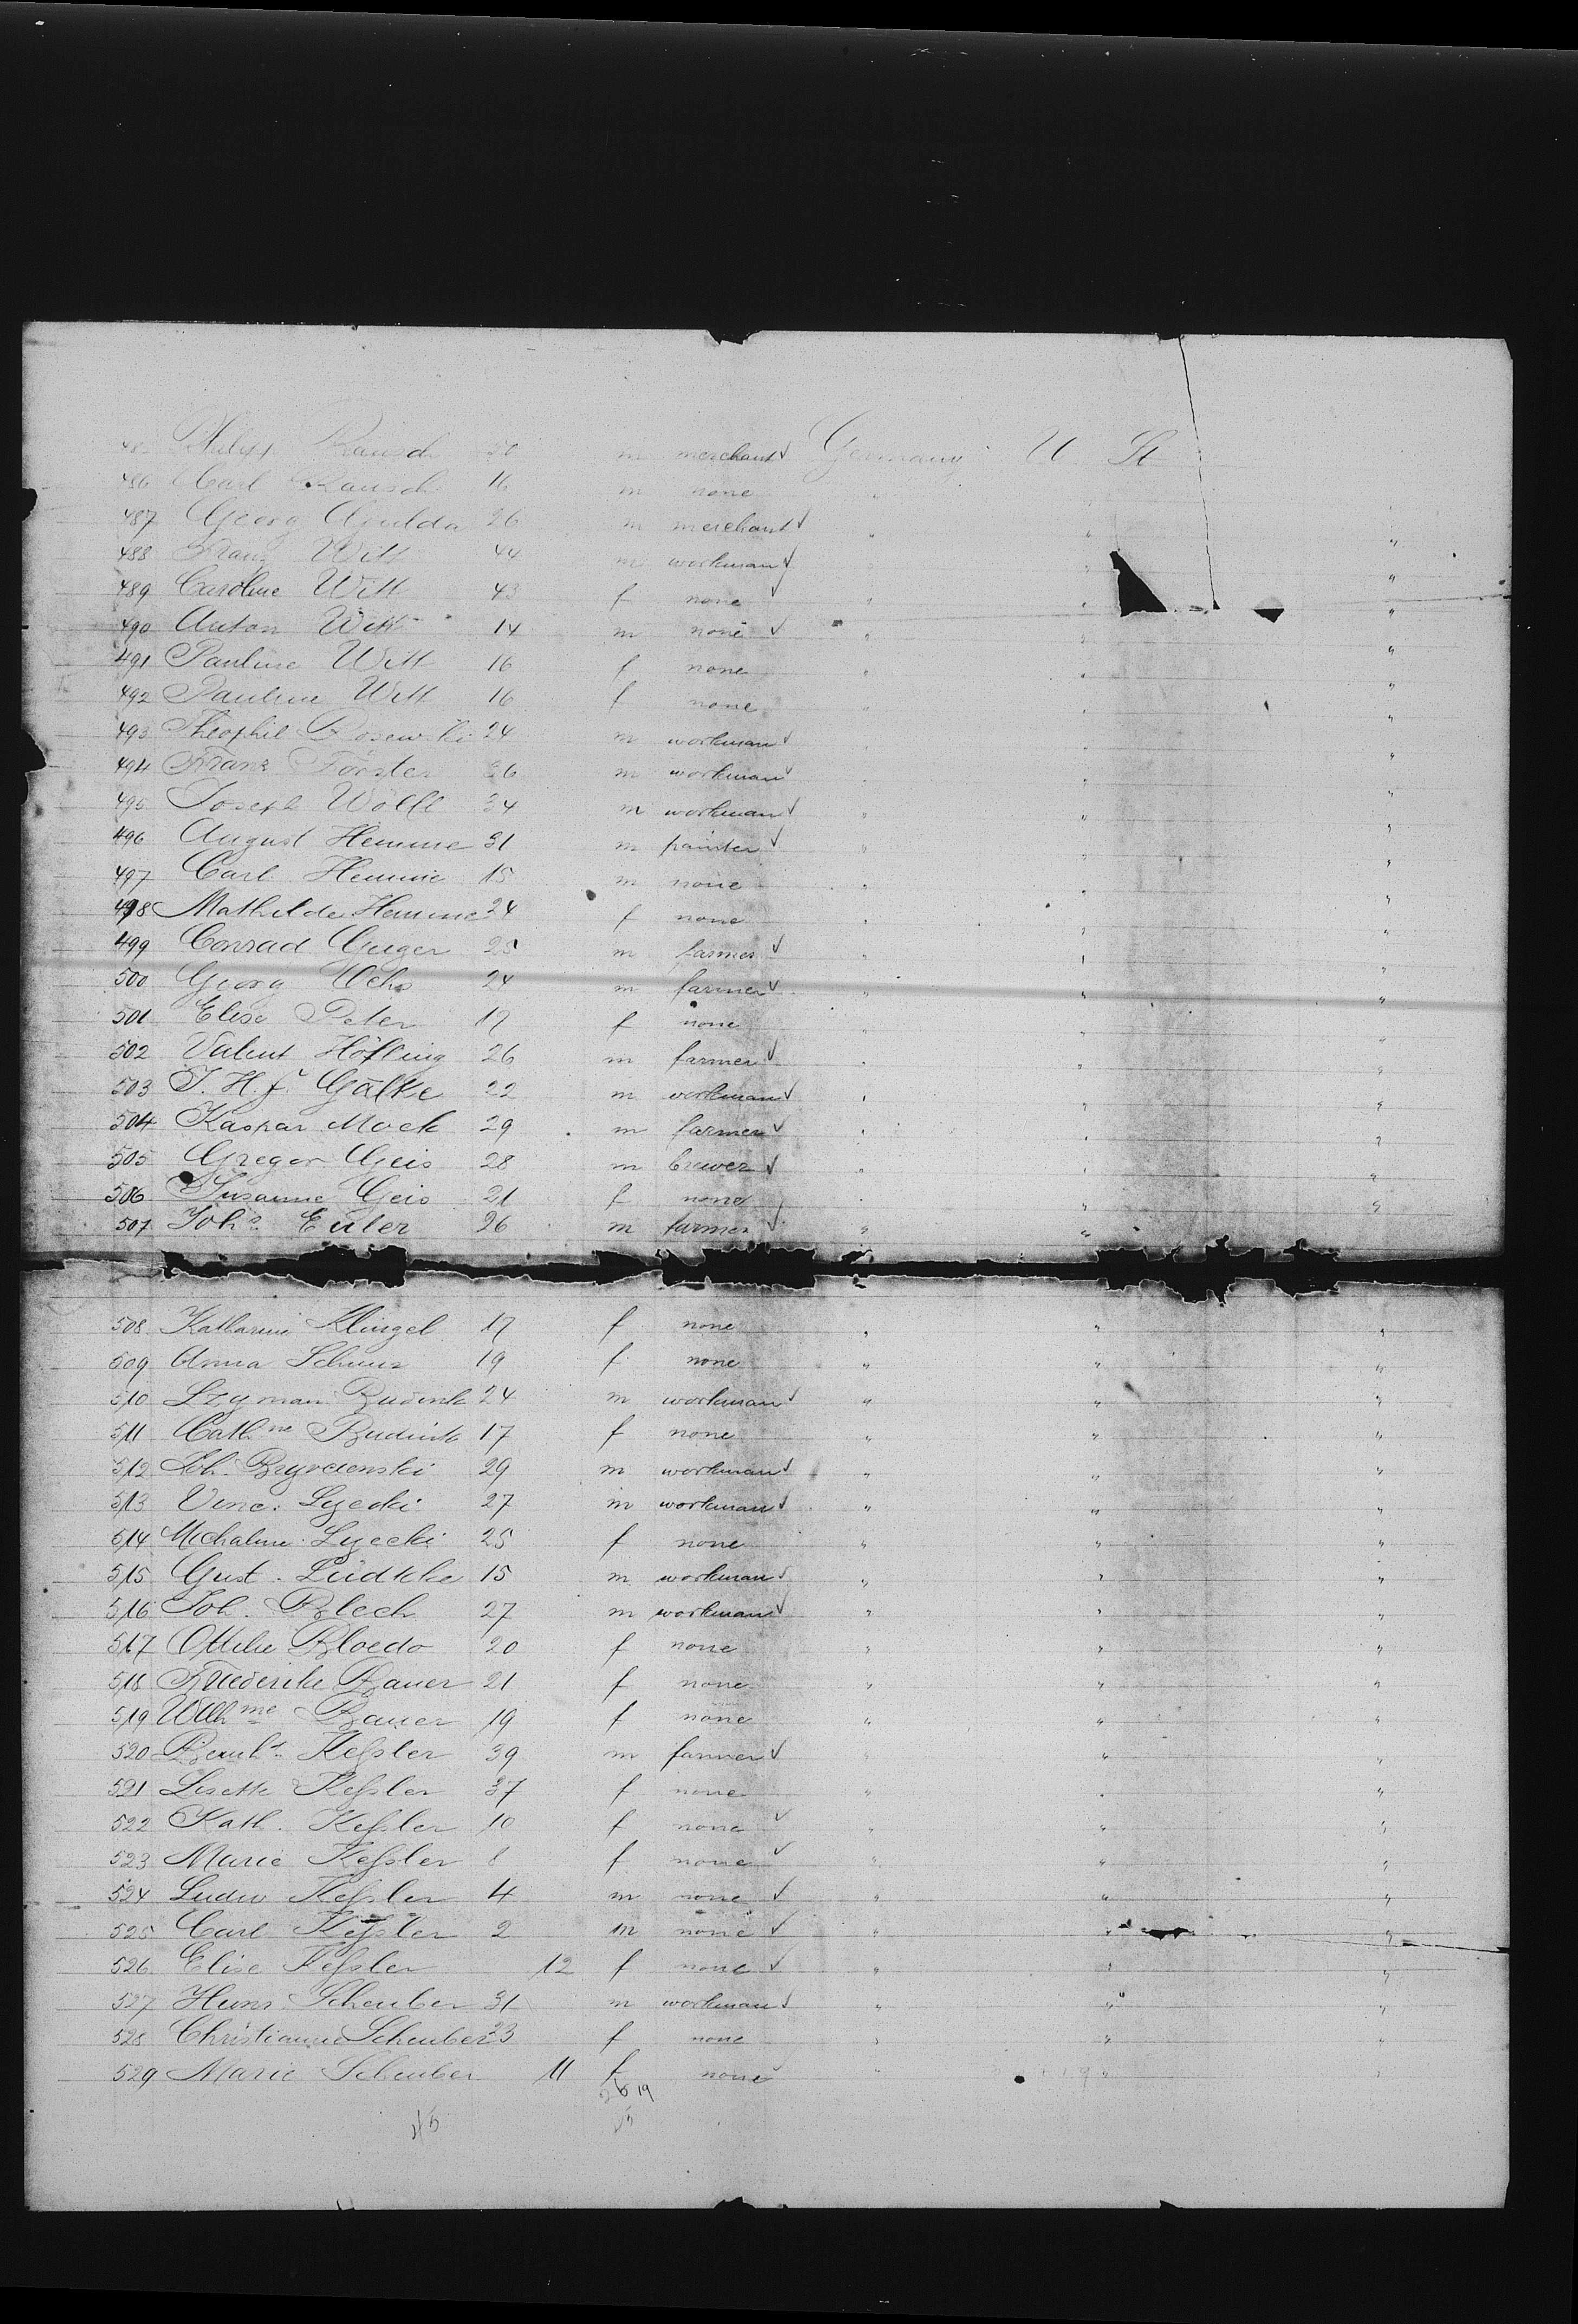 Philipp Rausch m merchant Germany U St
486 Carl Rausch 16 m none "
487 Georg Gulda 26 m merchant " " "
488 Franz Witt 44 m workman " " "
489 Caroline Witt 43 f none " " "
490 Anton Witt 14 m none " " "
491 Pauline Witt 16 f none " " "
492 Pauline Witt 16 f none " " "
493 Theophil 24 m workman " " "
494 Franz Förster 26 m workman " " "
495 Joseph Wölfl 34 m workman " " "
496 August Hemme 31 m painter " " "
497 Carl Hemme 15 m none " " "
498 Mathilde Hemme 24 f none " " "
499 Conrad Geiger 25 m farmer " " "
500 Georg Ochs 24 m farmer " " "
501 Elise Peter 17 f none " " "
502 Valent Höfling 26 m farmer " " "
503 J. H. f. Gälke 22 m workman " " "
504 Kaspar Mock 29 m farmer " " "
505 Gregor Geis 28 m brewer " " "
506 Susanne Geis 21 f none " " "
507 Johs. Euler 26 m farmer " " "
508 Katharine Klingel 17 f none " " "
509 Anna 19 f none " " "
510 24 m workman " " "
511 Cathne 17 f none " " "
512 Joh. 29 m workman " " "
513 Vinc. Lyecki 27 m workman " " "
514 Michaline Lyecki 25 f none " " "
515 Gust. Lüdtke 15 m workman " " "
516 Joh. Blech 27 m workman " " "
517 Ottilie Bloedo 20 f none " " "
518 Friederike Bauer 21 f none " " "
519 Wilhme Bauer 19 f none " " "
520 Bernhd Keßler 39 m farmer " "
521 Lisette Keßler 37 f none " " "
522 Kath. Keßler 10 f none " " "
523 Marie Keßler 8 f none " " "
524 Ludw Keßler 4 m none " " "
525 Carl Keßler 2 m none " " "
526 Elise Keßler 12 f none " " "
527 Hans Scheuber 31 m workman " " "
528 Christianne Scheuber 23 f none " " "
529 Marie Scheuber 11 f none " " "